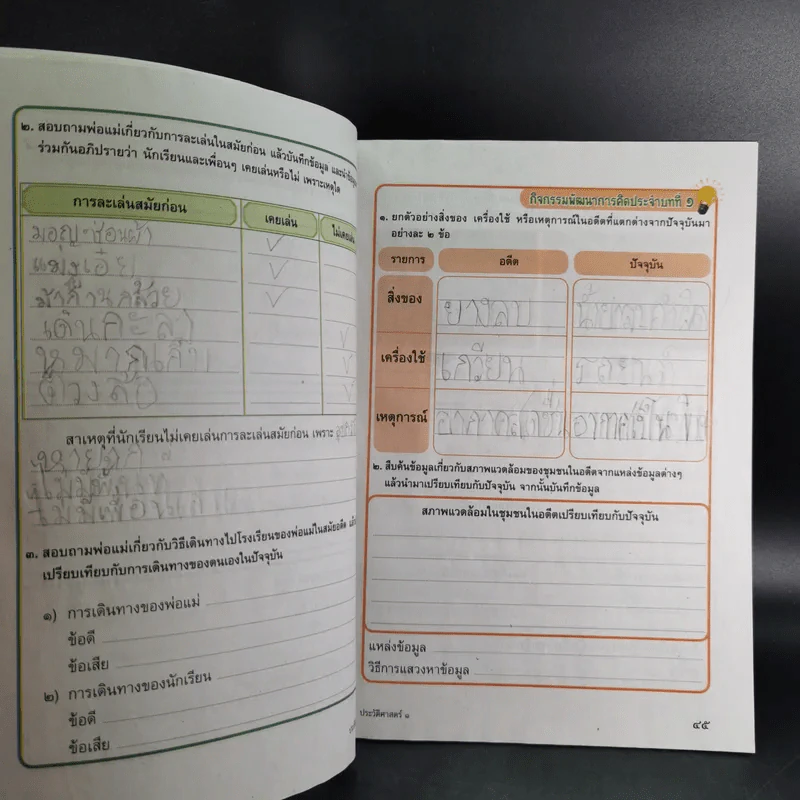 ๒. สอบถามพ่อแม่เกี่ยวกับการละเล่นในสมัยก่อน แล้วบันทึกข้อมูล และนำ
ร่วมกันอภิปรายว่า นักเรียนและเพื่อนๆ เคยเล่นหรือไม่ เพราะเหตุใด
การละเล่นสมัยก่อน เคยเล่น ไม่เคยเล่น
มอญซ่อนผ้า ✓
แมงเอ๋ย ✓
ม้าก้านกล้วย ✓
เดินกะลา ✓
หมากเก็บ ✓
✓
สาเหตุที่นักเรียนไม่เคยเล่นการละเล่นสมัยก่อน เพราะ
หายาก
ไม่มี
ไม่มีเพื่อนเล่น
๓. สอบถามพ่อแม่เกี่ยวกับวิธีเดินทางไปโรงเรียนของพ่อแม่ในสมัยอดีต แล้ว
เปรียบเทียบกับการเดินทางของตนเองในปัจจุบัน
๑) การเดินทางของพ่อแม่
ข้อดี
ข้อเสีย
๒) การเดินทางของนักเรียน
ข้อดี
ข้อเสีย
กิจกรรมพัฒนาการคิดประจำบทที่ ๑
๑. ยกตัวอย่างสิ่งของ เครื่องใช้ หรือเหตุการณ์ในอดีตที่แตกต่างจากปัจจุบันมา
อย่างละ ๒ ข้อ
รายการ อดีต ปัจจุบัน
สิ่งของ ยางลบ
เครื่องใช้ เกวียน รถยนต์
เหตุการณ์
๒. สืบค้นข้อมูลเกี่ยวกับสภาพแวดล้อมของชุมชนในอดีตจากแหล่งข้อมูลต่างๆ
แล้วนำมาเปรียบเทียบกับปัจจุบัน จากนั้นบันทึกข้อมูล
สภาพแวดล้อมในชุมชนในอดีตเปรียบเทียบกับปัจจุบัน
แหล่งข้อมูล
วิธีการแสวงหาข้อมูล
ประวัติศาสตร์ ๑
๔๕